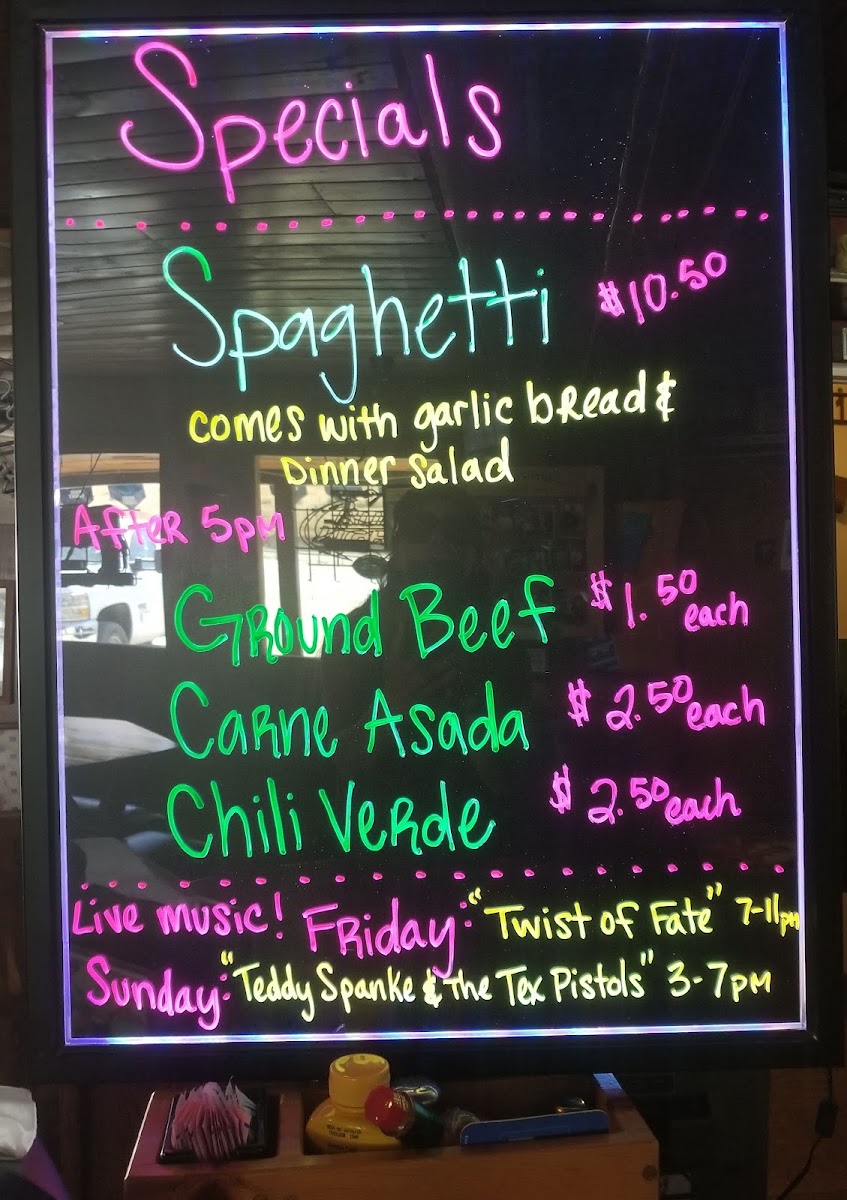 Specials
Spaghetti $10.50
comes with garlic bread &
Dinner Salad
After 5pm
Ground Beef $1.50 each
Carne Asada $2.50 each
Chili Verde $2.50 each
Live music! Friday: "Twist of Fate" 7-11pm
Sunday: "Teddy Spanke & The Tex Pistols" 3-7pm